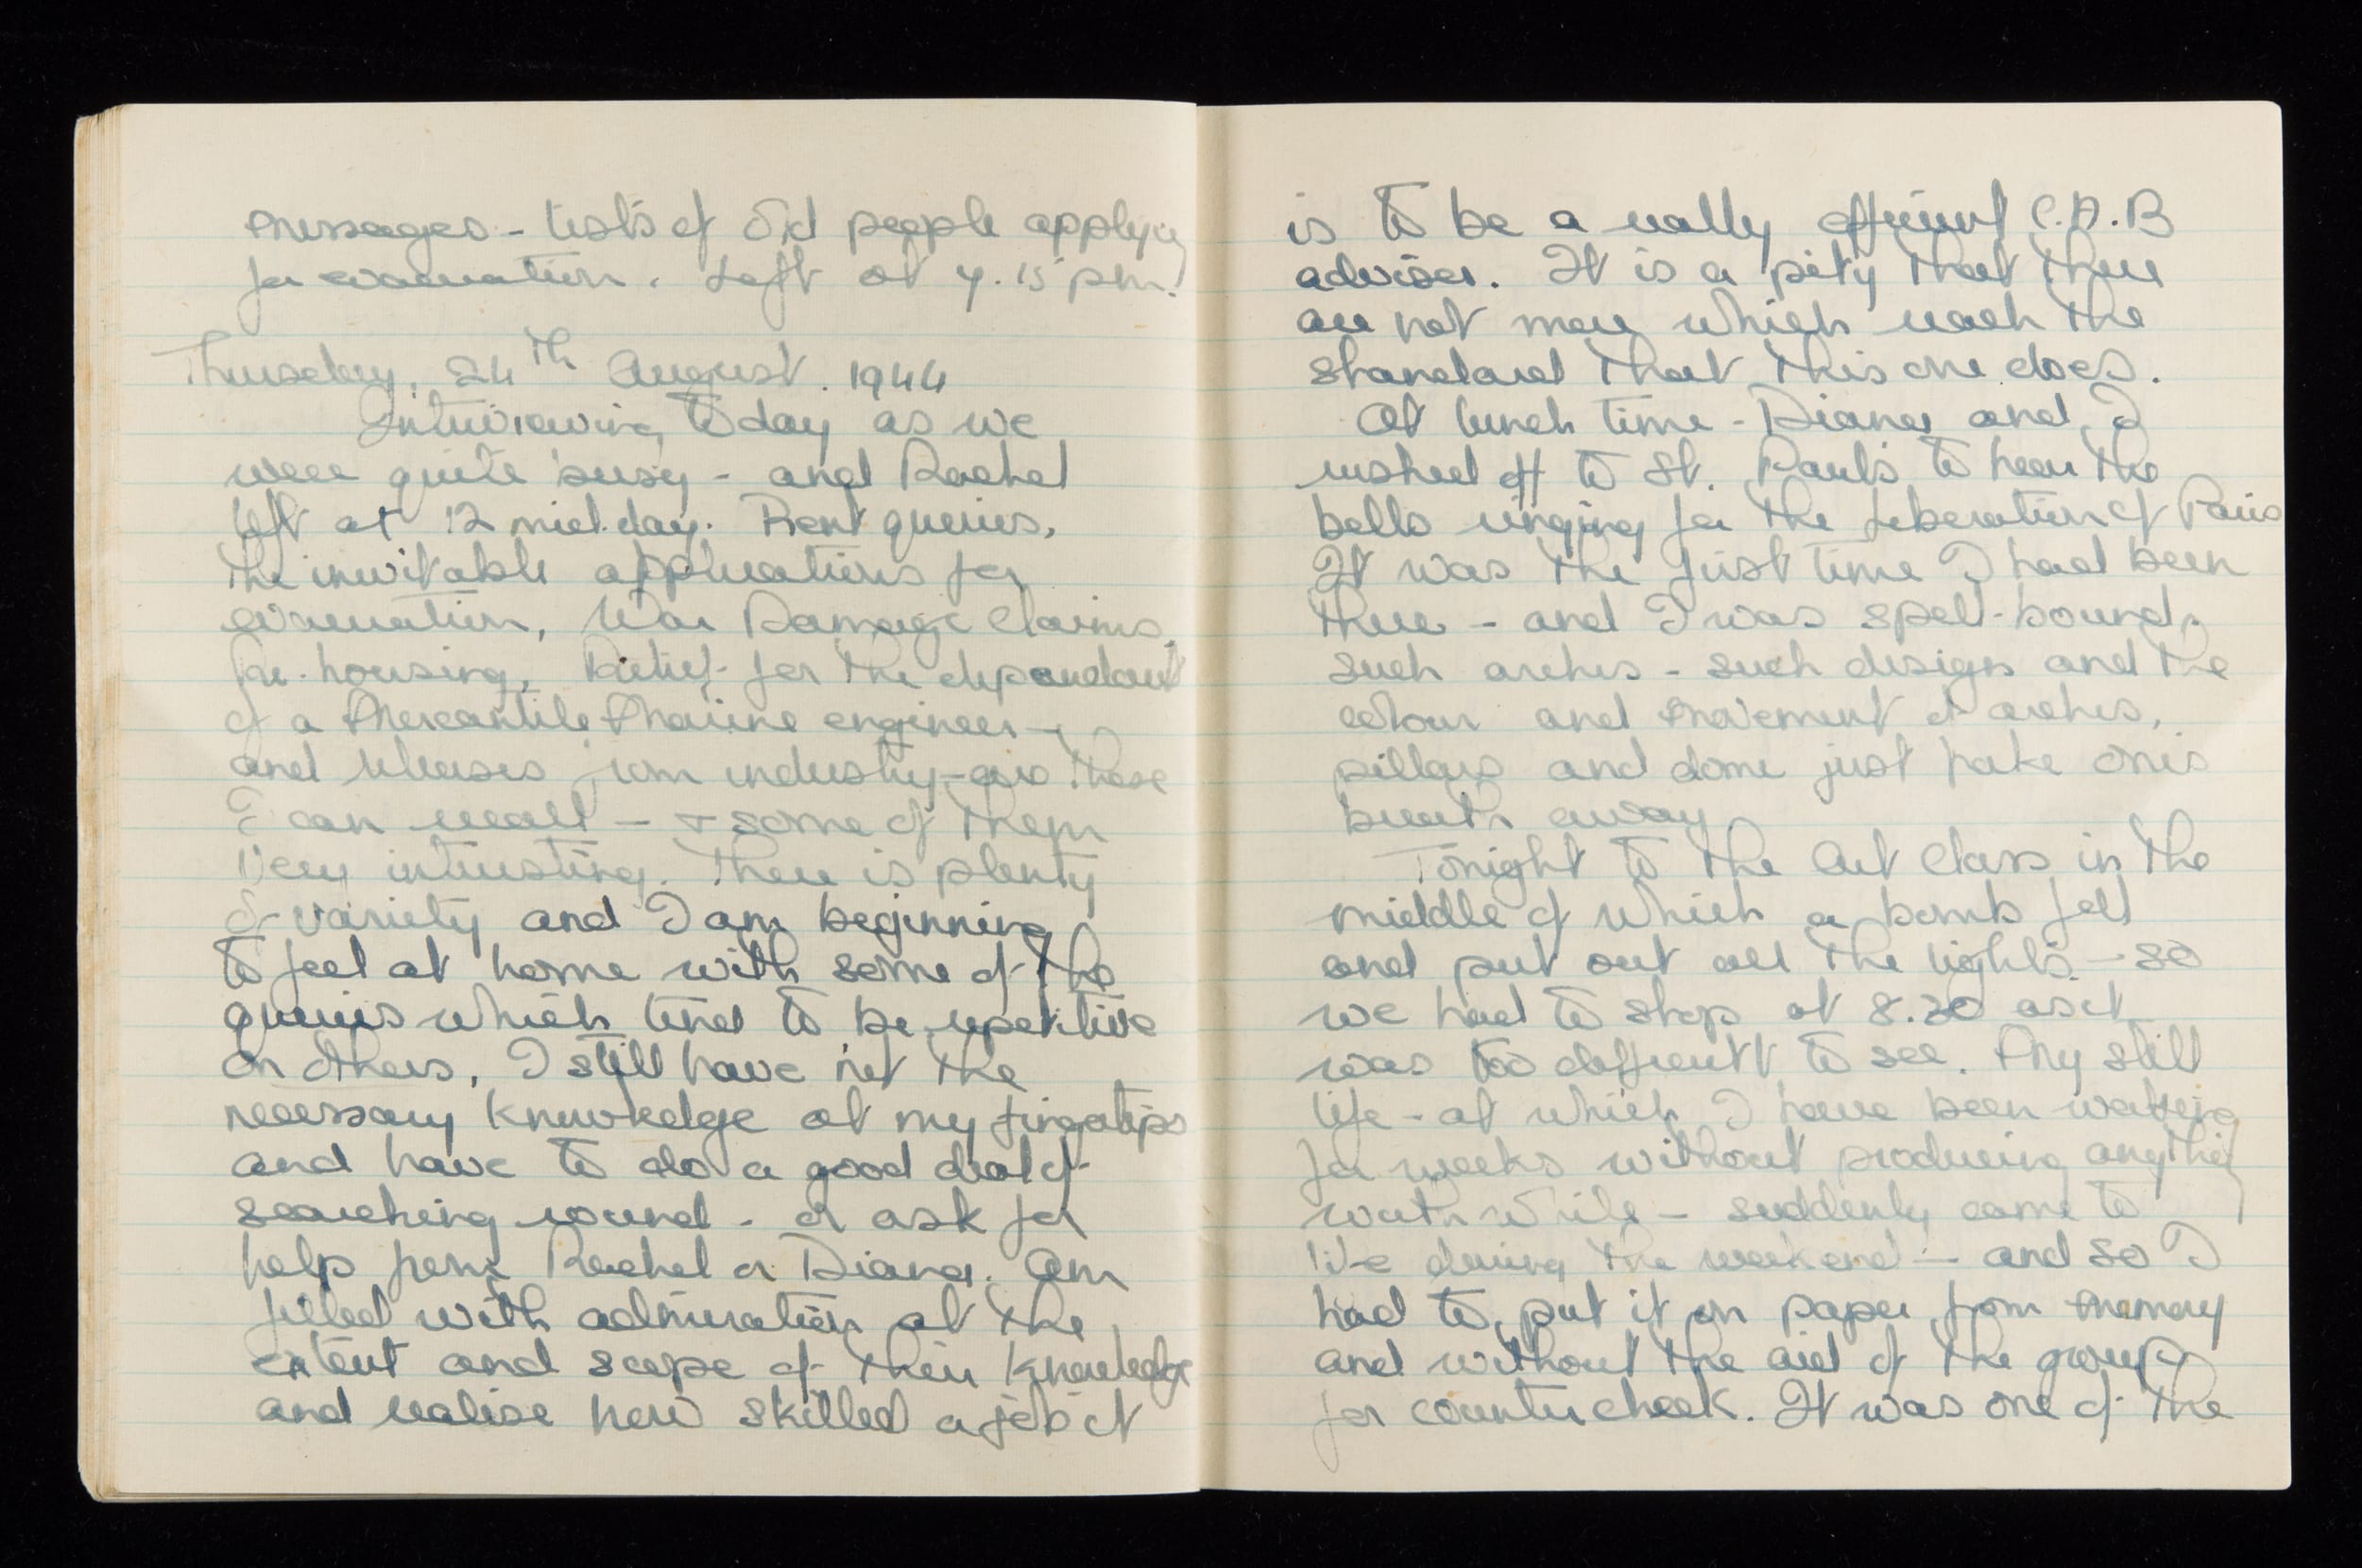 messages - lists of old people applying
for evacuation. Left at 7.15 pm!
Thursday, 24th August. 1944
Interviewing today as we
were quite busy - and Rachel
left at 12 mid.day. Rent queries,
the inevitable applications for
evacuation, War Damage Claims,
re-housing, Relief for the dependant
of a Mercantile Marine engineer -
and releases from industry - are those
I can recall - & some of them
very interesting. There is plenty
of variety and I am beginning
to feel at home with some of the
queries which tend to be repetitive
on others, I still have not the
necessary knowledge at my fingertips
and have to do a good deal of
searching round - or ask for
help from Rachel or Diana. Am
filled with admiration at the
extent and scope of their knowledge
and realise how skilled a job it
is to be a really efficient C.A.B
adviser. It is a pity that there
are not more which reach the
standard that this one does.
At lunch time - Diana and I
rushed off to St. Paul's to hear the
bells ringing for the liberation of Paris
It was the first time I had been
there - and I was spell-bound.
Such arches - such design and the
colour and movement of arches,
pillars and dome just take one's
breath away
Tonight to the Art Class in the
middle of which a bomb fell
and put out all the lights - so
we had to stop at 8.30 as it
was too difficult to see. My still
life - at which I have been working
for weeks without producing anything
worth while - suddenly came to
life during the weekend - and so I
had to put it on paper from memory
and without the aid of the group
for counter check. It was one of the